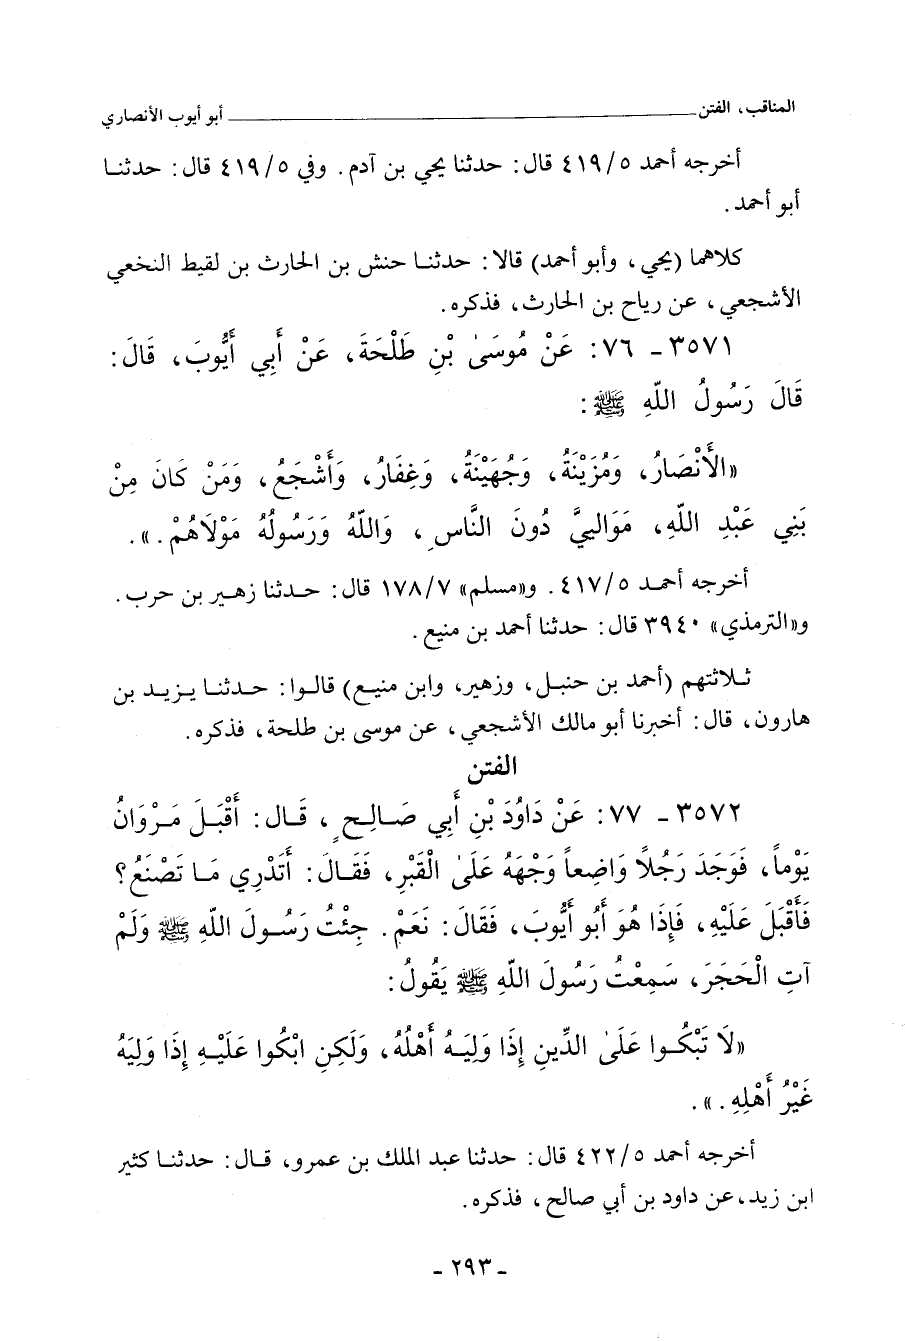 المناقب، الفتن ــــــــــــــــ أبو أيوب الأنصاري
أخرجه أحمد ٤١٩/٥ قال: حدثنا يحيي بن آدم. وفي ٤١٩/٥ قال: حدثنا
أبو أحمد.
كلاهما (يحيي، وأبو أحمد) قالا: حدثنا حنش بن الحارث بن لقيط النخعي
الأشجعي، عن رياح بن الحارث، فذكره.
٣٥٧١ - ٧٦: عَنْ مُوسَىٰ بْنِ طَلْحَةَ، عَنْ أَبِي أَيُّوبَ، قَالَ:
قَالَ رَسُولُ اللّهِ ﷺ:
«الأَنْصَارُ، وَمُزَيْنَةُ، وَجُهَيْنَةُ، وَغِفَارُ، وَأَشْجَعُ، وَمَنْ كَانَ مِنْ
بَنِي عَبْدِ اللّهِ، مَوَالِيَّ دُونَ النَّاسِ، وَاللّهُ وَرَسُولُهُ مَوْلَاهُمْ.».
أخرجه أحمد ٤١٧/٥. و«مسلم» ١٧٨/٧ قال: حدثنا زهير بن حرب.
و«الترمذي» ٣٩٤٠ قال: حدثنا أحمد بن منيع.
ثلاثتهم (أحمد بن حنبل، وزهير، وابن منيع) قالوا: حدثنا يزيد بن
هارون، قال: أخبرنا أبو مالك الأشجعي، عن موسى بن طلحة، فذكره.
الفتن
٣٥٧٢ - ٧٧: عَنْ دَاوُدَ بْنِ أَبِي صَالِحٍ، قَال: أَقْبَلَ مَرْوَانُ
يَوْماً، فَوَجَدَ رَجُلاً وَاضِعاً وَجْهَهُ عَلَىٰ الْقَبْرِ، فَقَالَ: أَتَدْرِي مَا تَصْنَعُ؟
فَأَقْبَلَ عَلَيْهِ، فَإِذَا هُوَ أَبُو أَيُّوبَ، فَقَالَ: نَعَمْ. جِئْتُ رَسُولَ اللّهِ ﷺ وَلَمْ
آتِ الْحَجَرَ، سَمِعْتُ رَسُولَ اللّهِ ﷺ يَقُولُ:
«لَا تَبْكُوا عَلَىٰ الدِّينِ إِذَا وَلِيَهُ أَهْلُهُ، وَلَكِنِ ابْكُوا عَلَيْهِ إِذَا وَلِيَهُ
غَيْرُ أَهْلِهِ.».
أخرجه أحمد ٤٢٢/٥ قال: حدثنا عبد الملك بن عمرو، قال: حدثنا كثير
ابن زيد، عن داود بن أبي صالح، فذكره.
- ٢٩٣ -